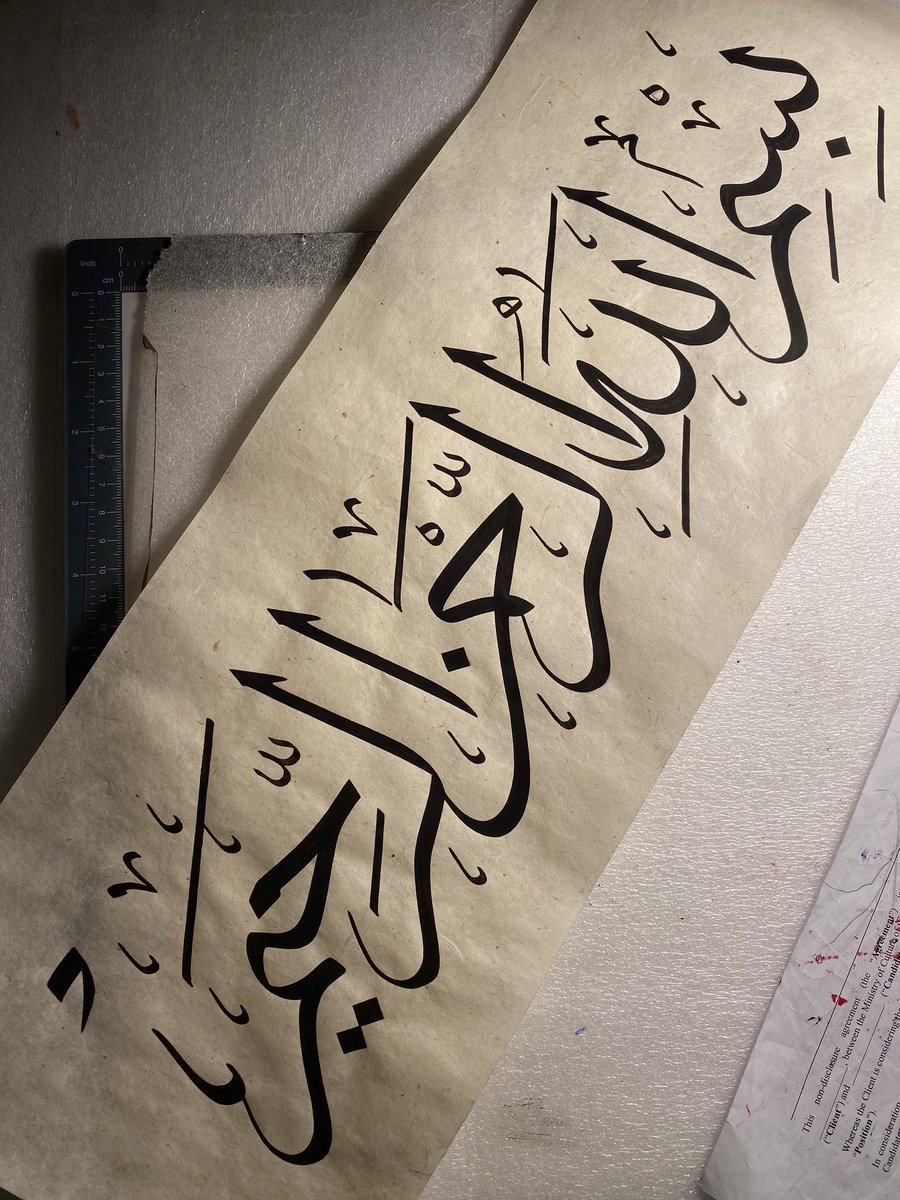 بِسْمِ اللهِ الرَّحْمٰنِ الرَّحِيمِ
inch
cm
0
0
0 1 2 3 4 5 6 7 8 9 10 11 12
1 2 3 4 5
This non-disclosure agreement (the "Agreement")
("Client") and between the Ministry of Culture of
Whereas the Client is considering the
"Position").
In consideration